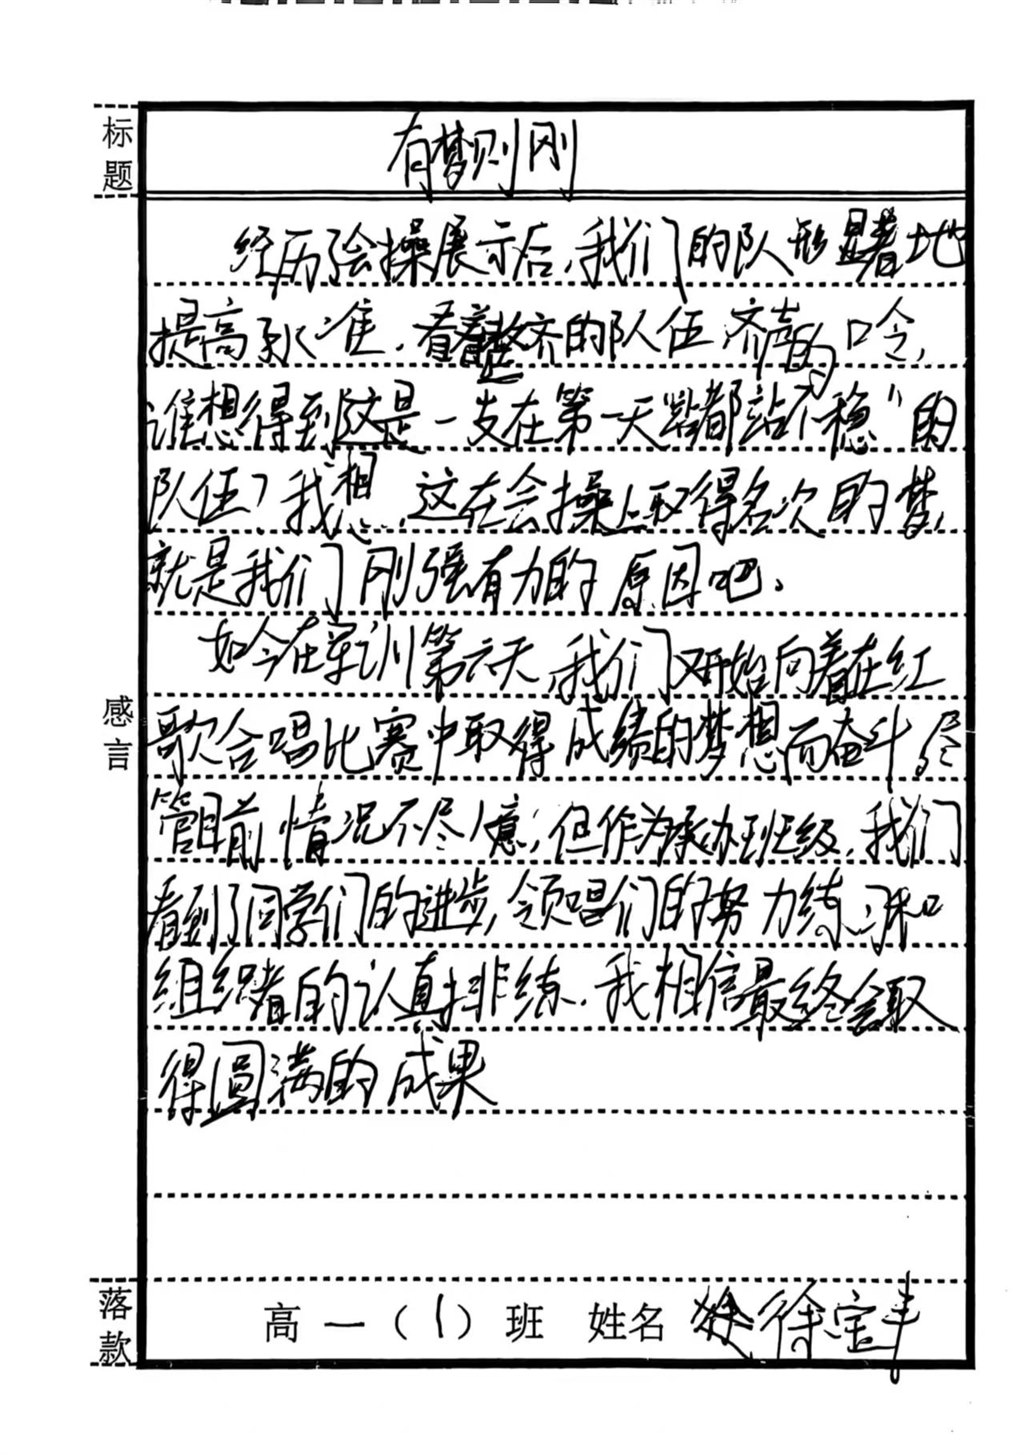 标题
有梦则刚
经历了会操展示后，我们的队形显著地
提高了水准，看着整齐的队伍，齐声的口令，
谁想得到这是一支在第一天“站都站不稳”的
队伍？我想，这在会操上取得名次的梦，
就是我们刚强有力的原因吧。
如今在军训第六天，我们又开始向着在红
歌合唱比赛中取得成绩的梦想而奋斗，尽
管目前情况不尽人意，但作为承办班级，我们
看到了同学们的进步，领唱们的努力练习和
组织者的认真排练，我相信最终会取
得圆满的成果
感言
落款
高一（1）班 姓名 徐宝丰